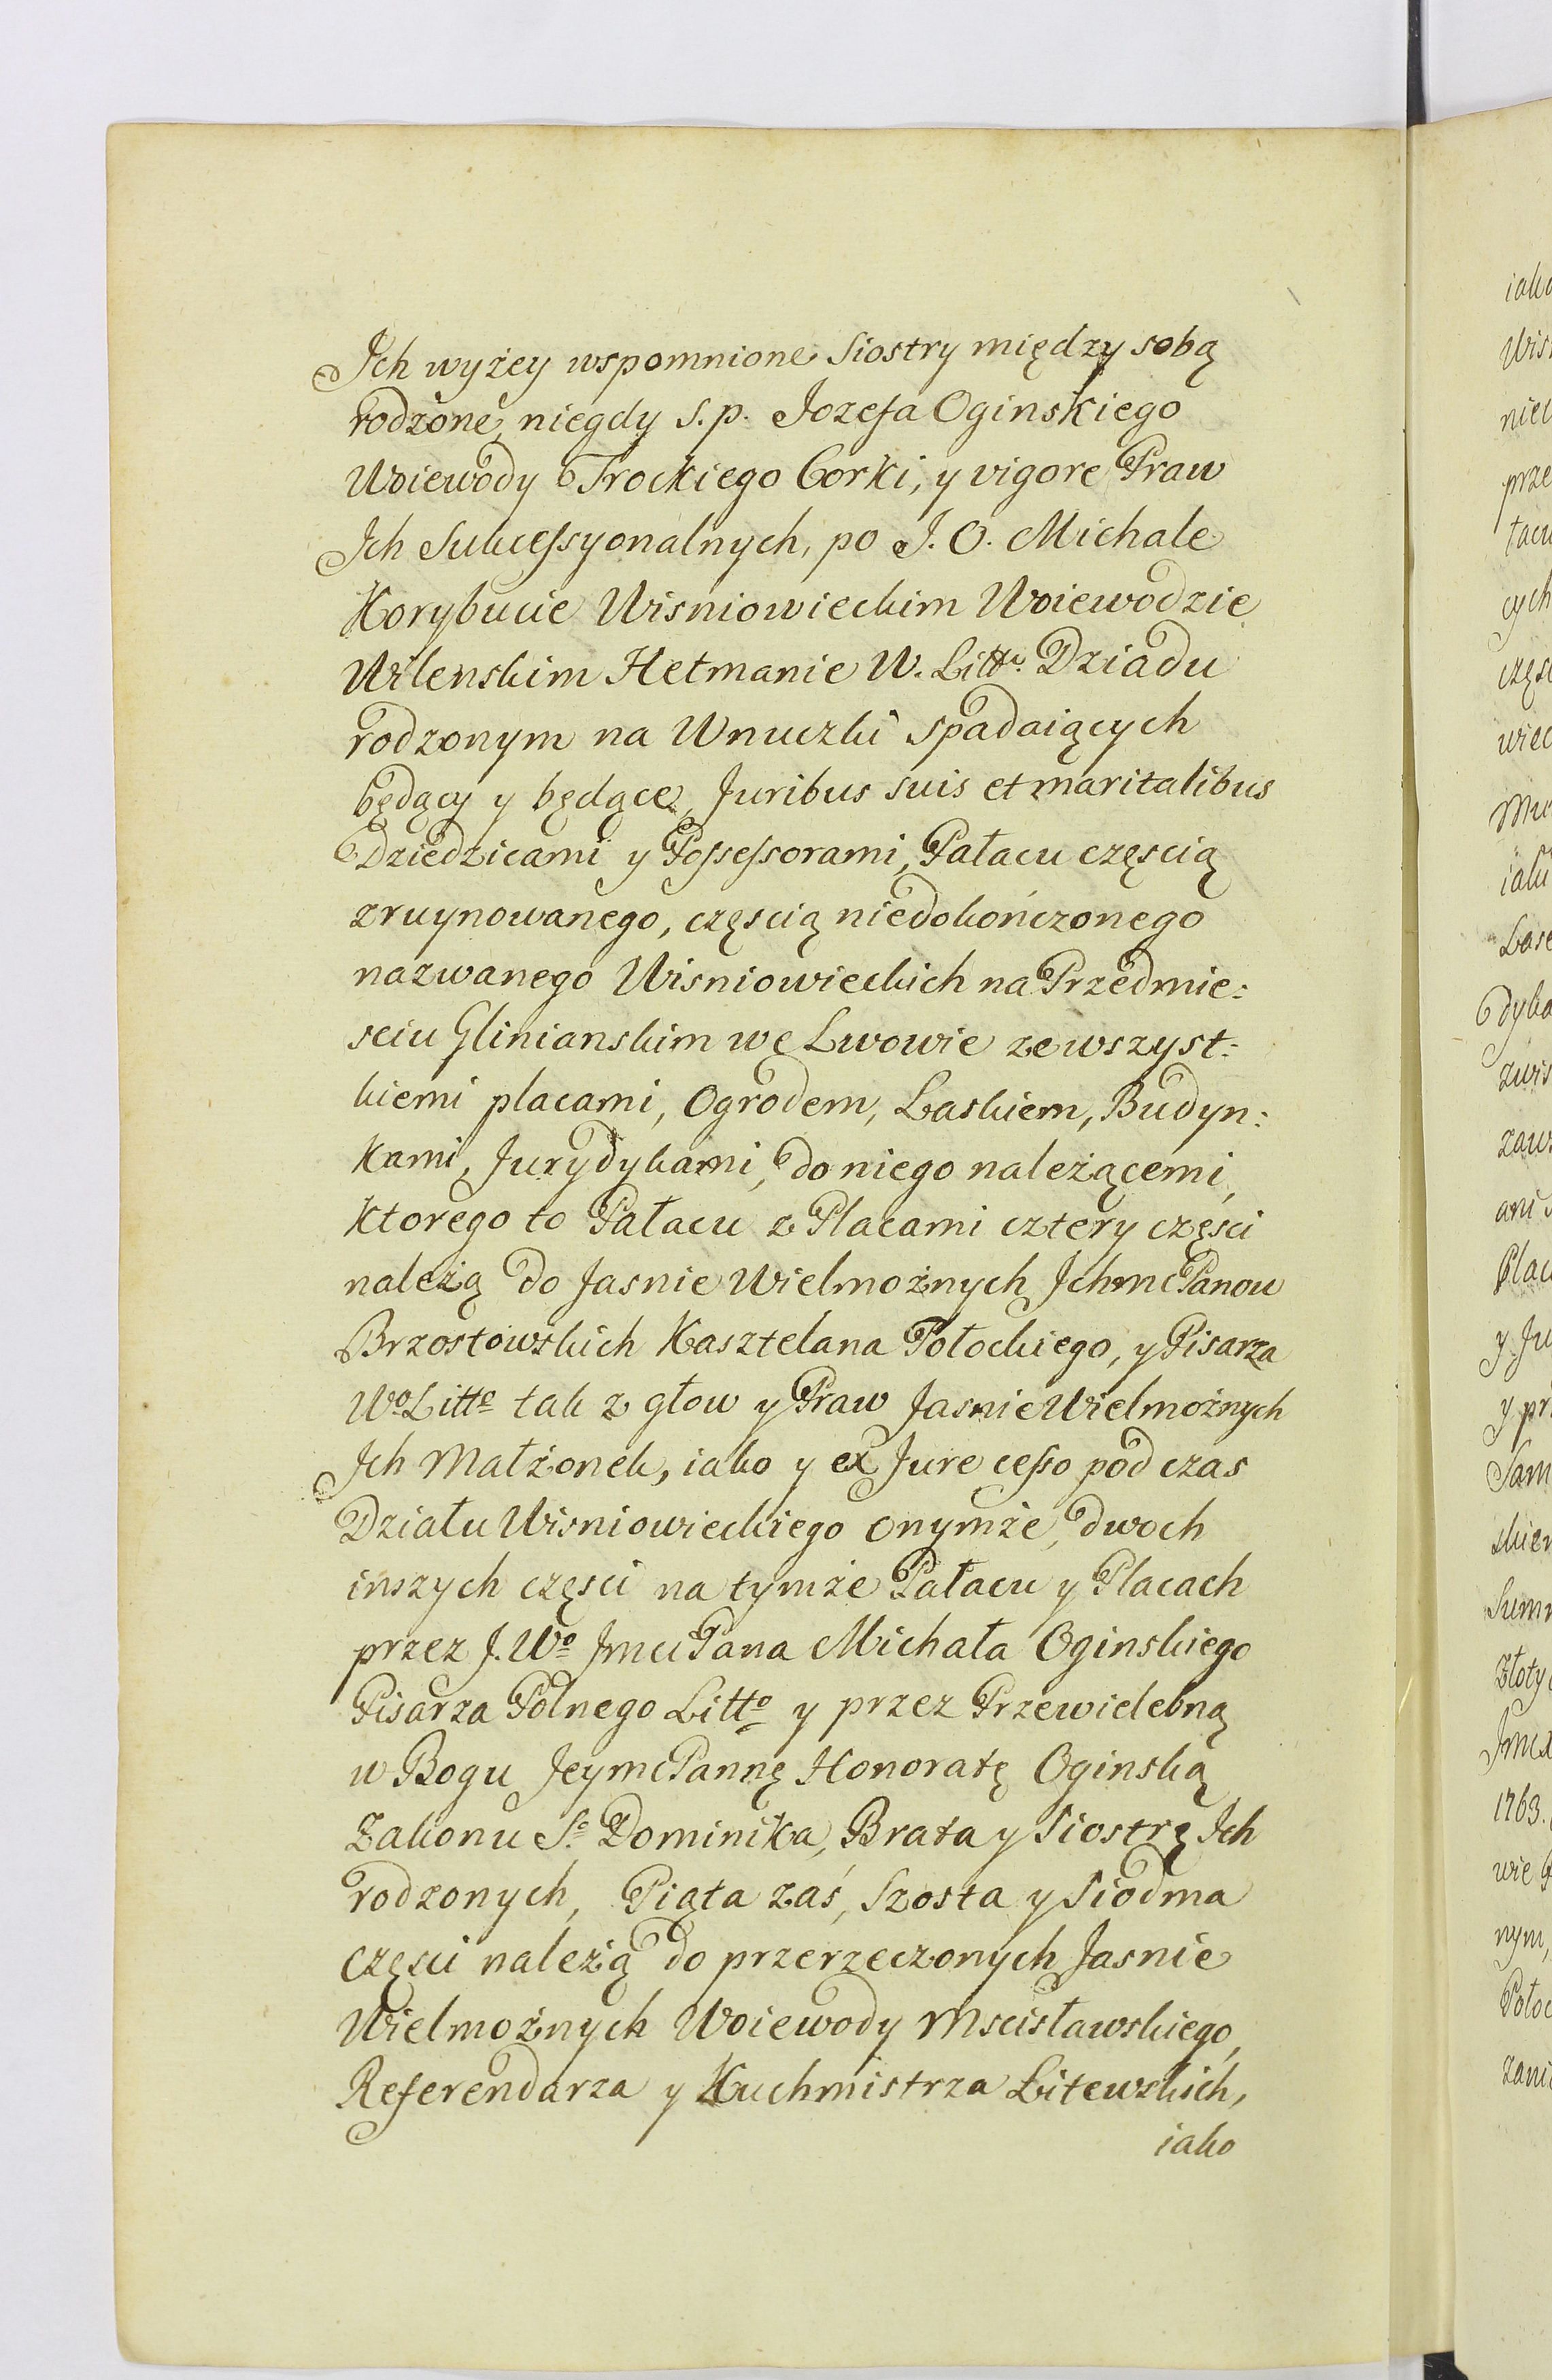 Ich wyżey wspomnione Siostry między sobą
rodzone, niegdy S.p. Jozefa Oginskiego
Woiewody Trockiego Corki, y vigore Praw
Ich Sukcessyonalnych, po J. O. Michale
Korybucie Wisniowieckim Woiewodzie
Wilenskim Hetmanie W. Litt. Dziadu
rodzonym na Wnuczki spadaiących
będący y będące, Juribus suis et maritalibus
Dziedzicami y Possessorami, Pałacu częscią
zruynowanego, częscią niedokończonego
nazwanego Wisniowieckich na Przedmie:
sciu Glinianskim wę Lwowie ze wszyst:
kiemi placami, Ogrodem, Laskiem, Budyn:
kami, Jurydykami, do niego należącemi,
ktorego to Pałacu z Placami cztery częsci
należą do Jasnie Wielmożnych Ichmc Panow
Brzostowskich Kasztelana Połockiego, y Pisarza
Wo Litto tak z głow y Praw Jasnie Wielmożnych
Ich Małżonek, iako y ex Jure cesso pod czas
Działu Wisniowieckiego onymże, dwoch
inszych częsci na tymże Pałacu y Placach
przez J. Wo Jmci Pana Michała Oginskiego
Pisarza Polnego Litto y przez Przewielebną
w Bogu Jeymc Pannę Honoratę Oginską
Zakonu So Dominika, Brata y Siostrę Ich
rodzonych, Piąta zaś, Szosta y Siodma
Częsci należą do przerzeczonych Jasnie
Wielmożnych Woiewody Mscisławskiego,
Referendarza y Kuchmistrza Litewskich,
iako